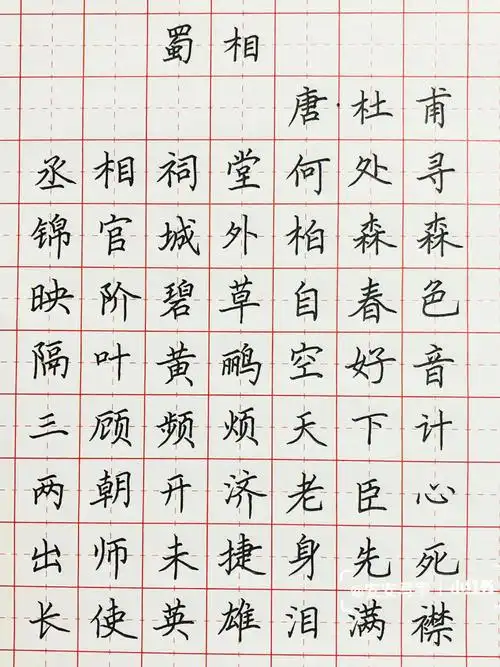 蜀相
唐·杜甫
丞相祠堂何处寻
锦官城外柏森森
映阶碧草自春色
隔叶黄鹂空好音
三顾频烦天下计
两朝开济老臣心
出师未捷身先死
长使英雄泪满襟
小红书